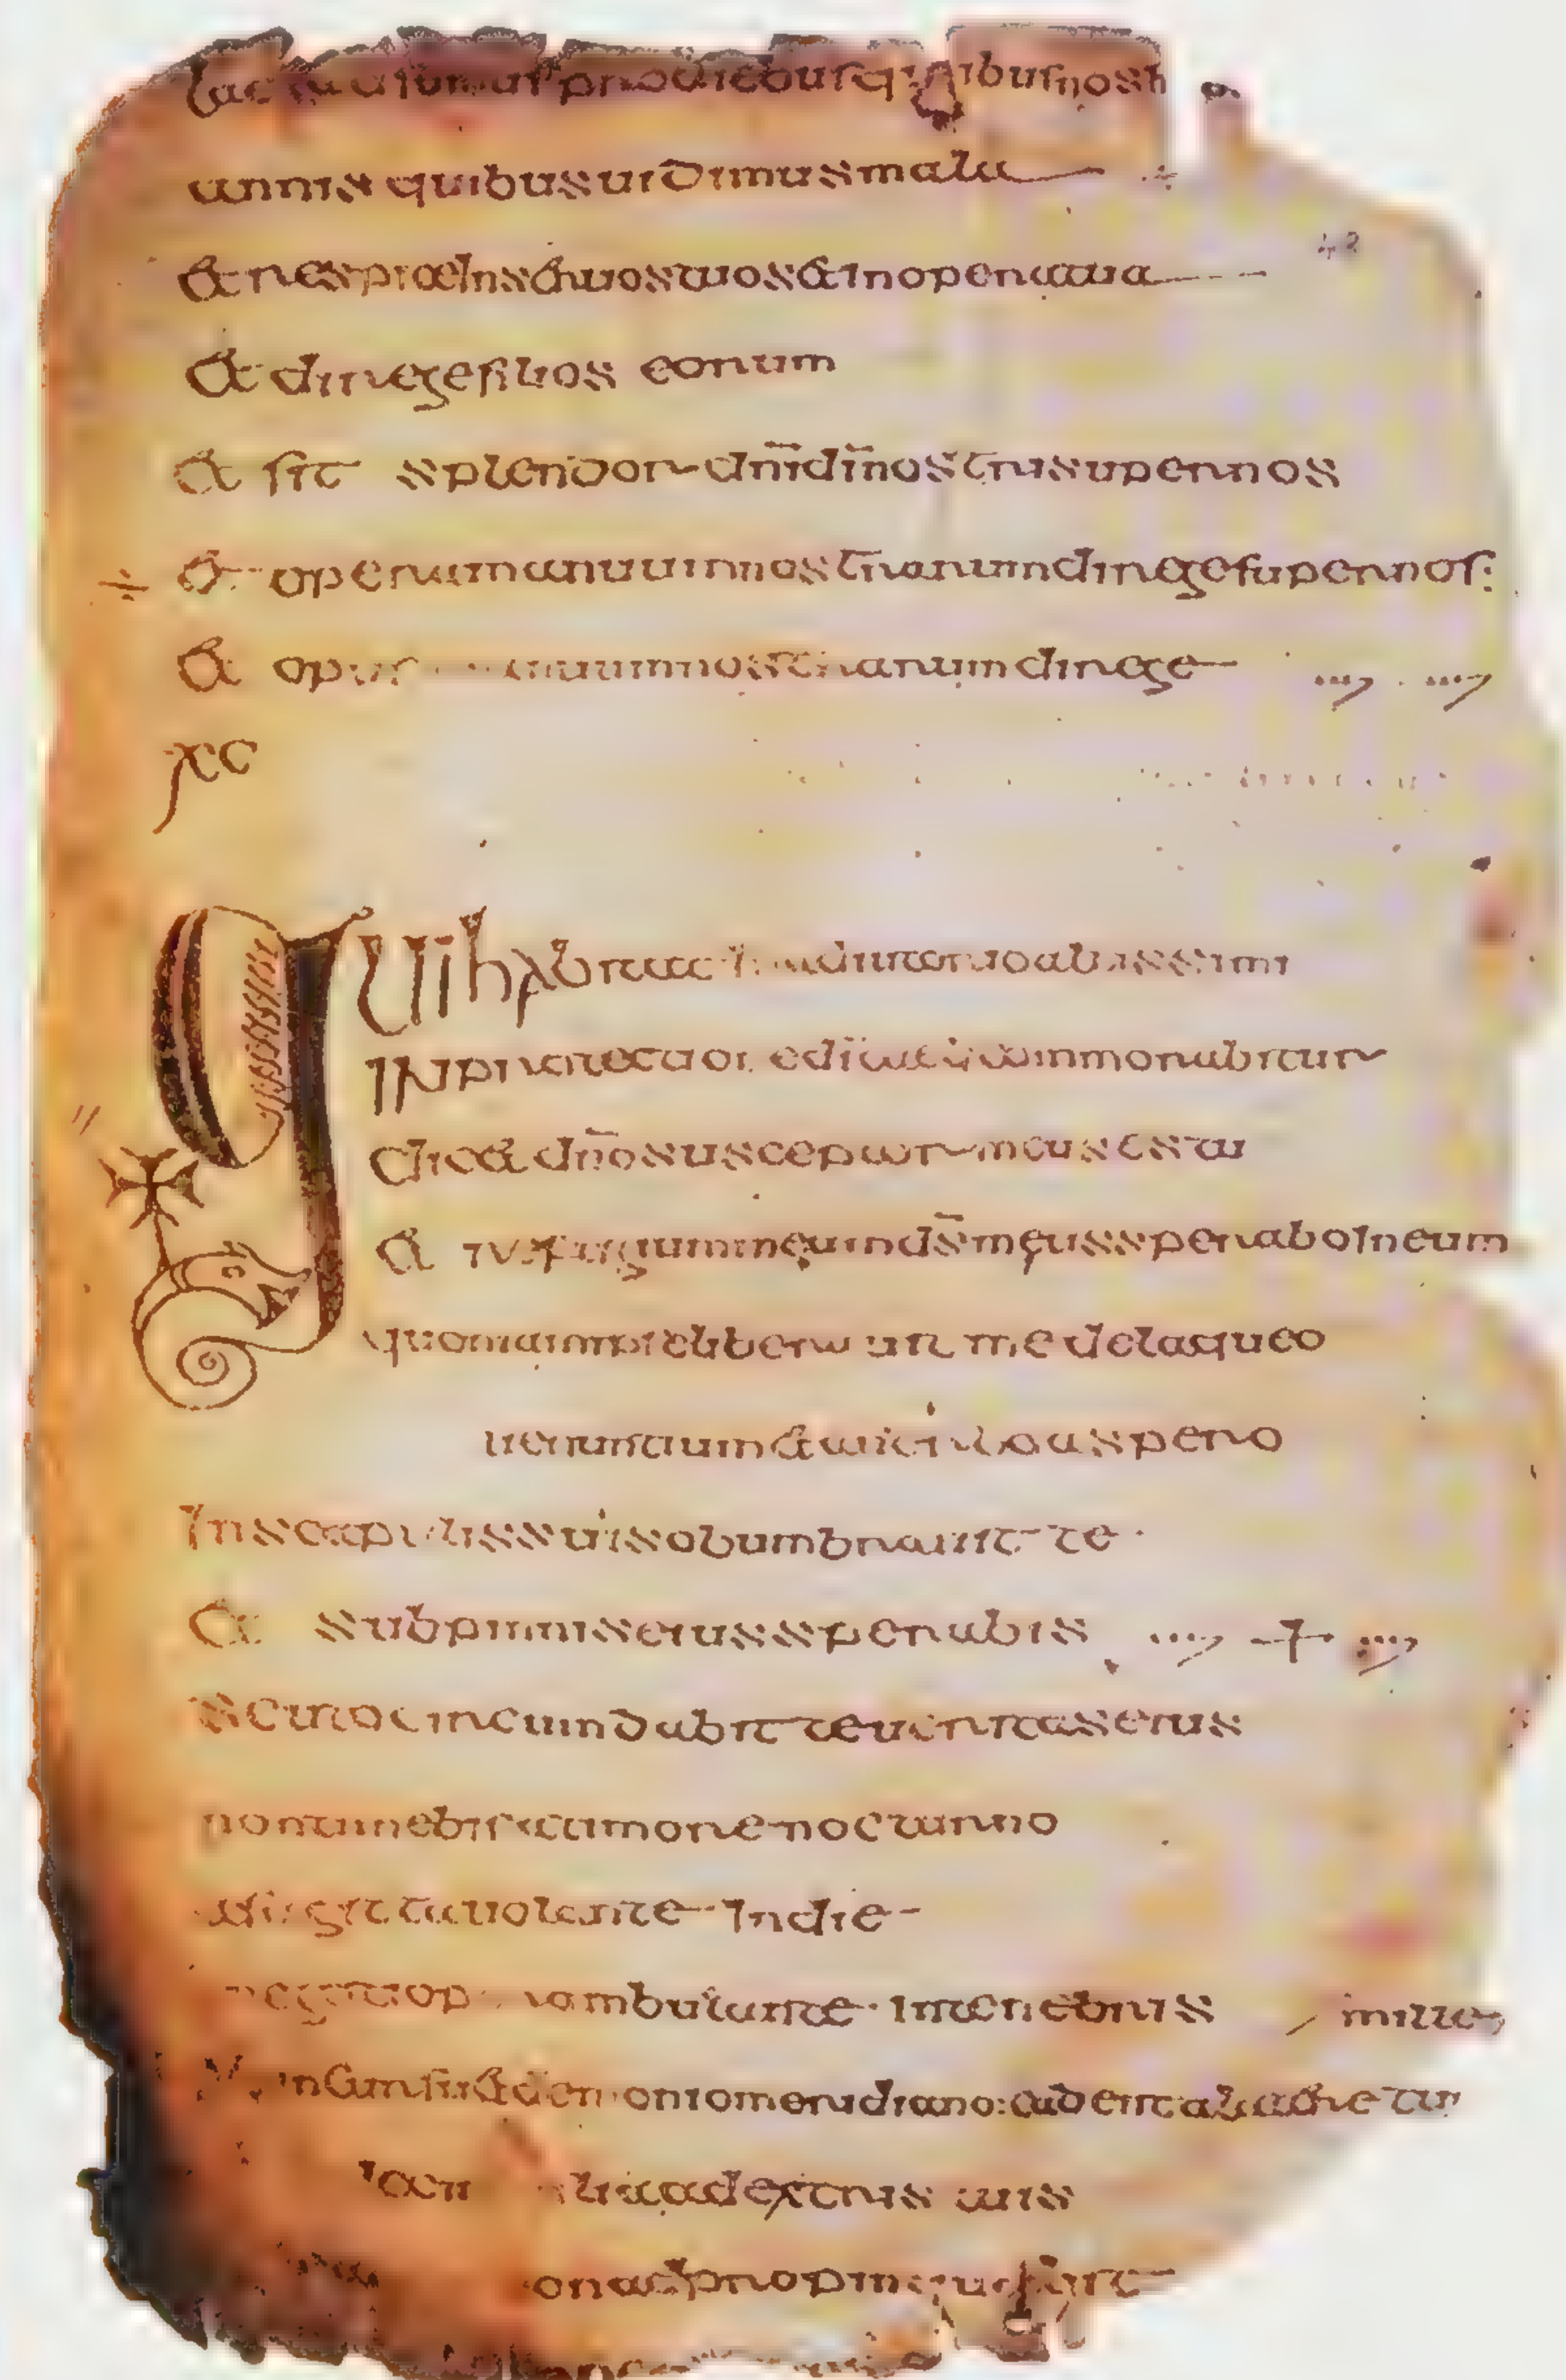 laetati sumus pro diebus quibus nos h
annis quibus uidimus mala
& respice in seruos tuos & in opera tua
& dirige filios eorum
& sit splendor dn̄i dī nostri super nos
÷ & opera manuum nostrarum dirige super nos:
& opus manuum nostrarum dirige
xc
42
Qui habitat in adiutorio altissimi
in protectione dī caeli commorabitur
dic& dn̄o susceptor meus es tu
& refugium meum ds̄ meus sperabo in eum
quoniam ipse liberauit me de laqueo
uenantium & a uerbo aspero
In scapulis suis obumbrauit te
& sub pinnis eius sperabis
scuto circumdabit te ueritas eius
non timebis a timore nocturno
a sagitta uolante In die
negotio perambulante in tenebris mille
incursu & demonio meridiano: cadent a latere tuo
milia a dextris tuis
non adpropinquabit